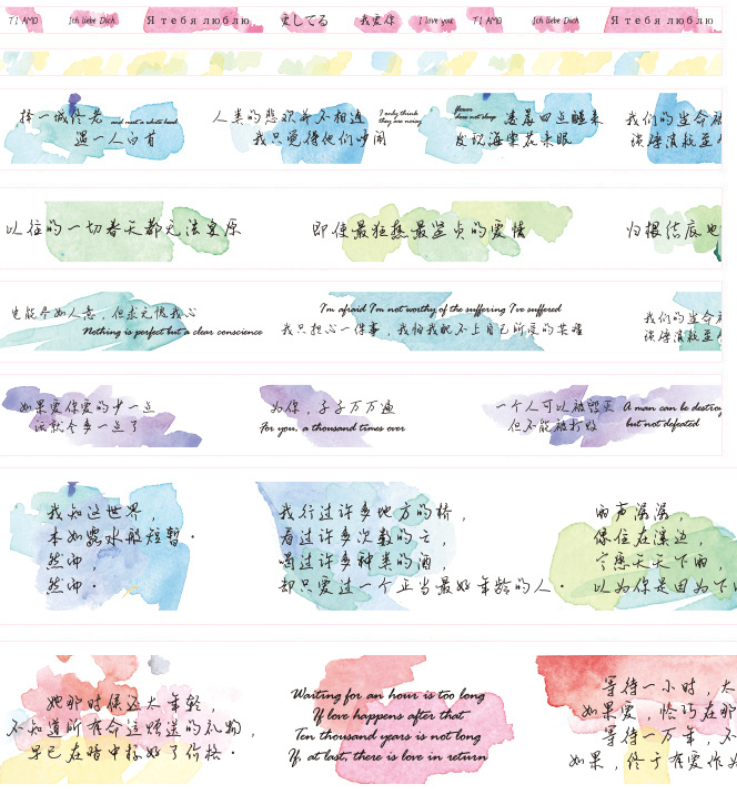 TI AMO Ich liebe Dich Я тебя люблю 愛してる 我爱你 I love you TI AMO Ich liebe Dich Я тебя люблю
择一城终老 and meet a white head
遇一人白首
人类的悲欢并不相通 I only think
我只觉得他们吵闹 they are noisy
flower
does not sleep 凌晨四点醒来
发现海棠花未眠
我们的生命被
以往的一切春天都无法复原
即使最狂热最坚贞的爱情
归根结底也
岂能尽如人意，但求无愧我心
Nothing is perfect but a clear conscience
I'm afraid I'm not worthy of the suffering I've suffered
我只担心一件事，我怕我配不上自己所受的苦难
我们的生命
如果爱你爱的少一点
话就会多一点了
为你，千千万万遍
For you, a thousand times over
一个人可以被毁灭 A man can be destroy
但不能被打败 but not defeated
我知这世界，
本如露水般短暂·
然而，
然而·
我行过许多地方的桥，
看过许多次数的云，
喝过许多种类的酒，
却只爱过一个正当最好年龄的人·
雨声潺潺，
像住在溪边，
宁愿天天下雨，
以为你是因为下
她那时候还太年轻，
不知道所有命运赠送的礼物，
早已在暗中标好了价格·
Waiting for an hour is too long
If love happens after that
Ten thousand years is not long
If, at last, there is love in return
等待一小时，太
如果爱，恰巧在那
等待一万年，不
如果，终于有爱作为